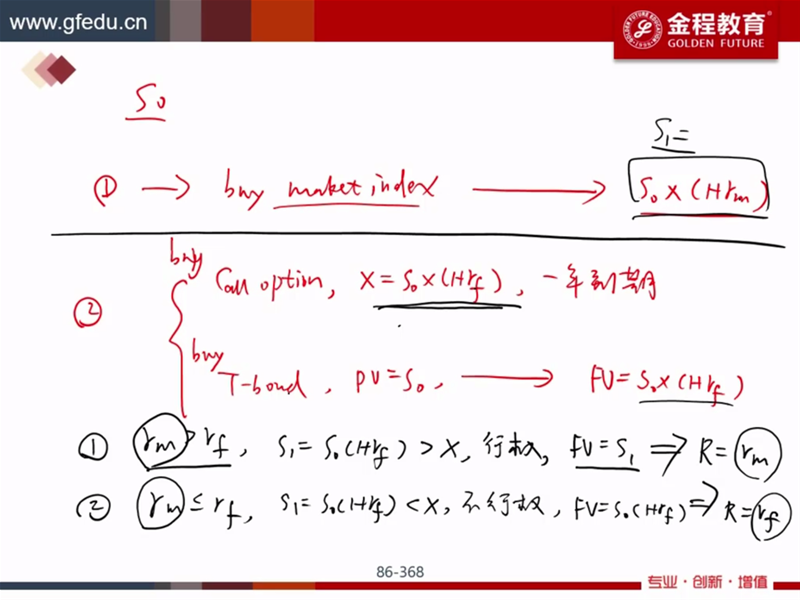 www.gfedu.cn
金程教育
GOLDEN FUTURE
S0
S1=
① → buy market index → S0×(1+rm)
② buy Call option, X=S0×(1+rf), 一年到期
buy T-bond, PV=S0, → FV=S0×(1+rf)
① rm>rf, S1=S0(1+rf)>X, 行权, FV=S1 ⇒ R=rm
② rm≤rf, S1=S0(1+rf)<X, 不行权, FV=S0(1+rf) ⇒ R=rf
86-368
专业·创新·增值